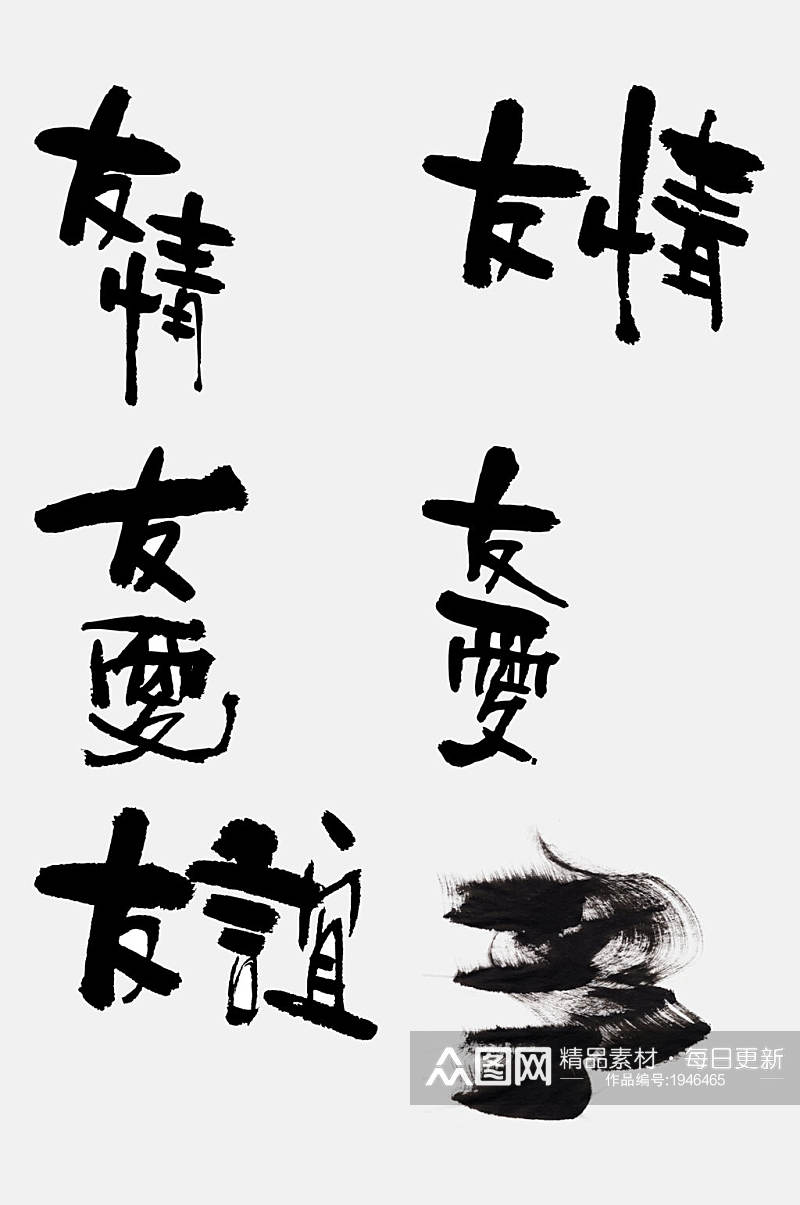 友情
友情
友愛
友愛
友誼
众图网 精品素材·每日更新
作品编号:1946465